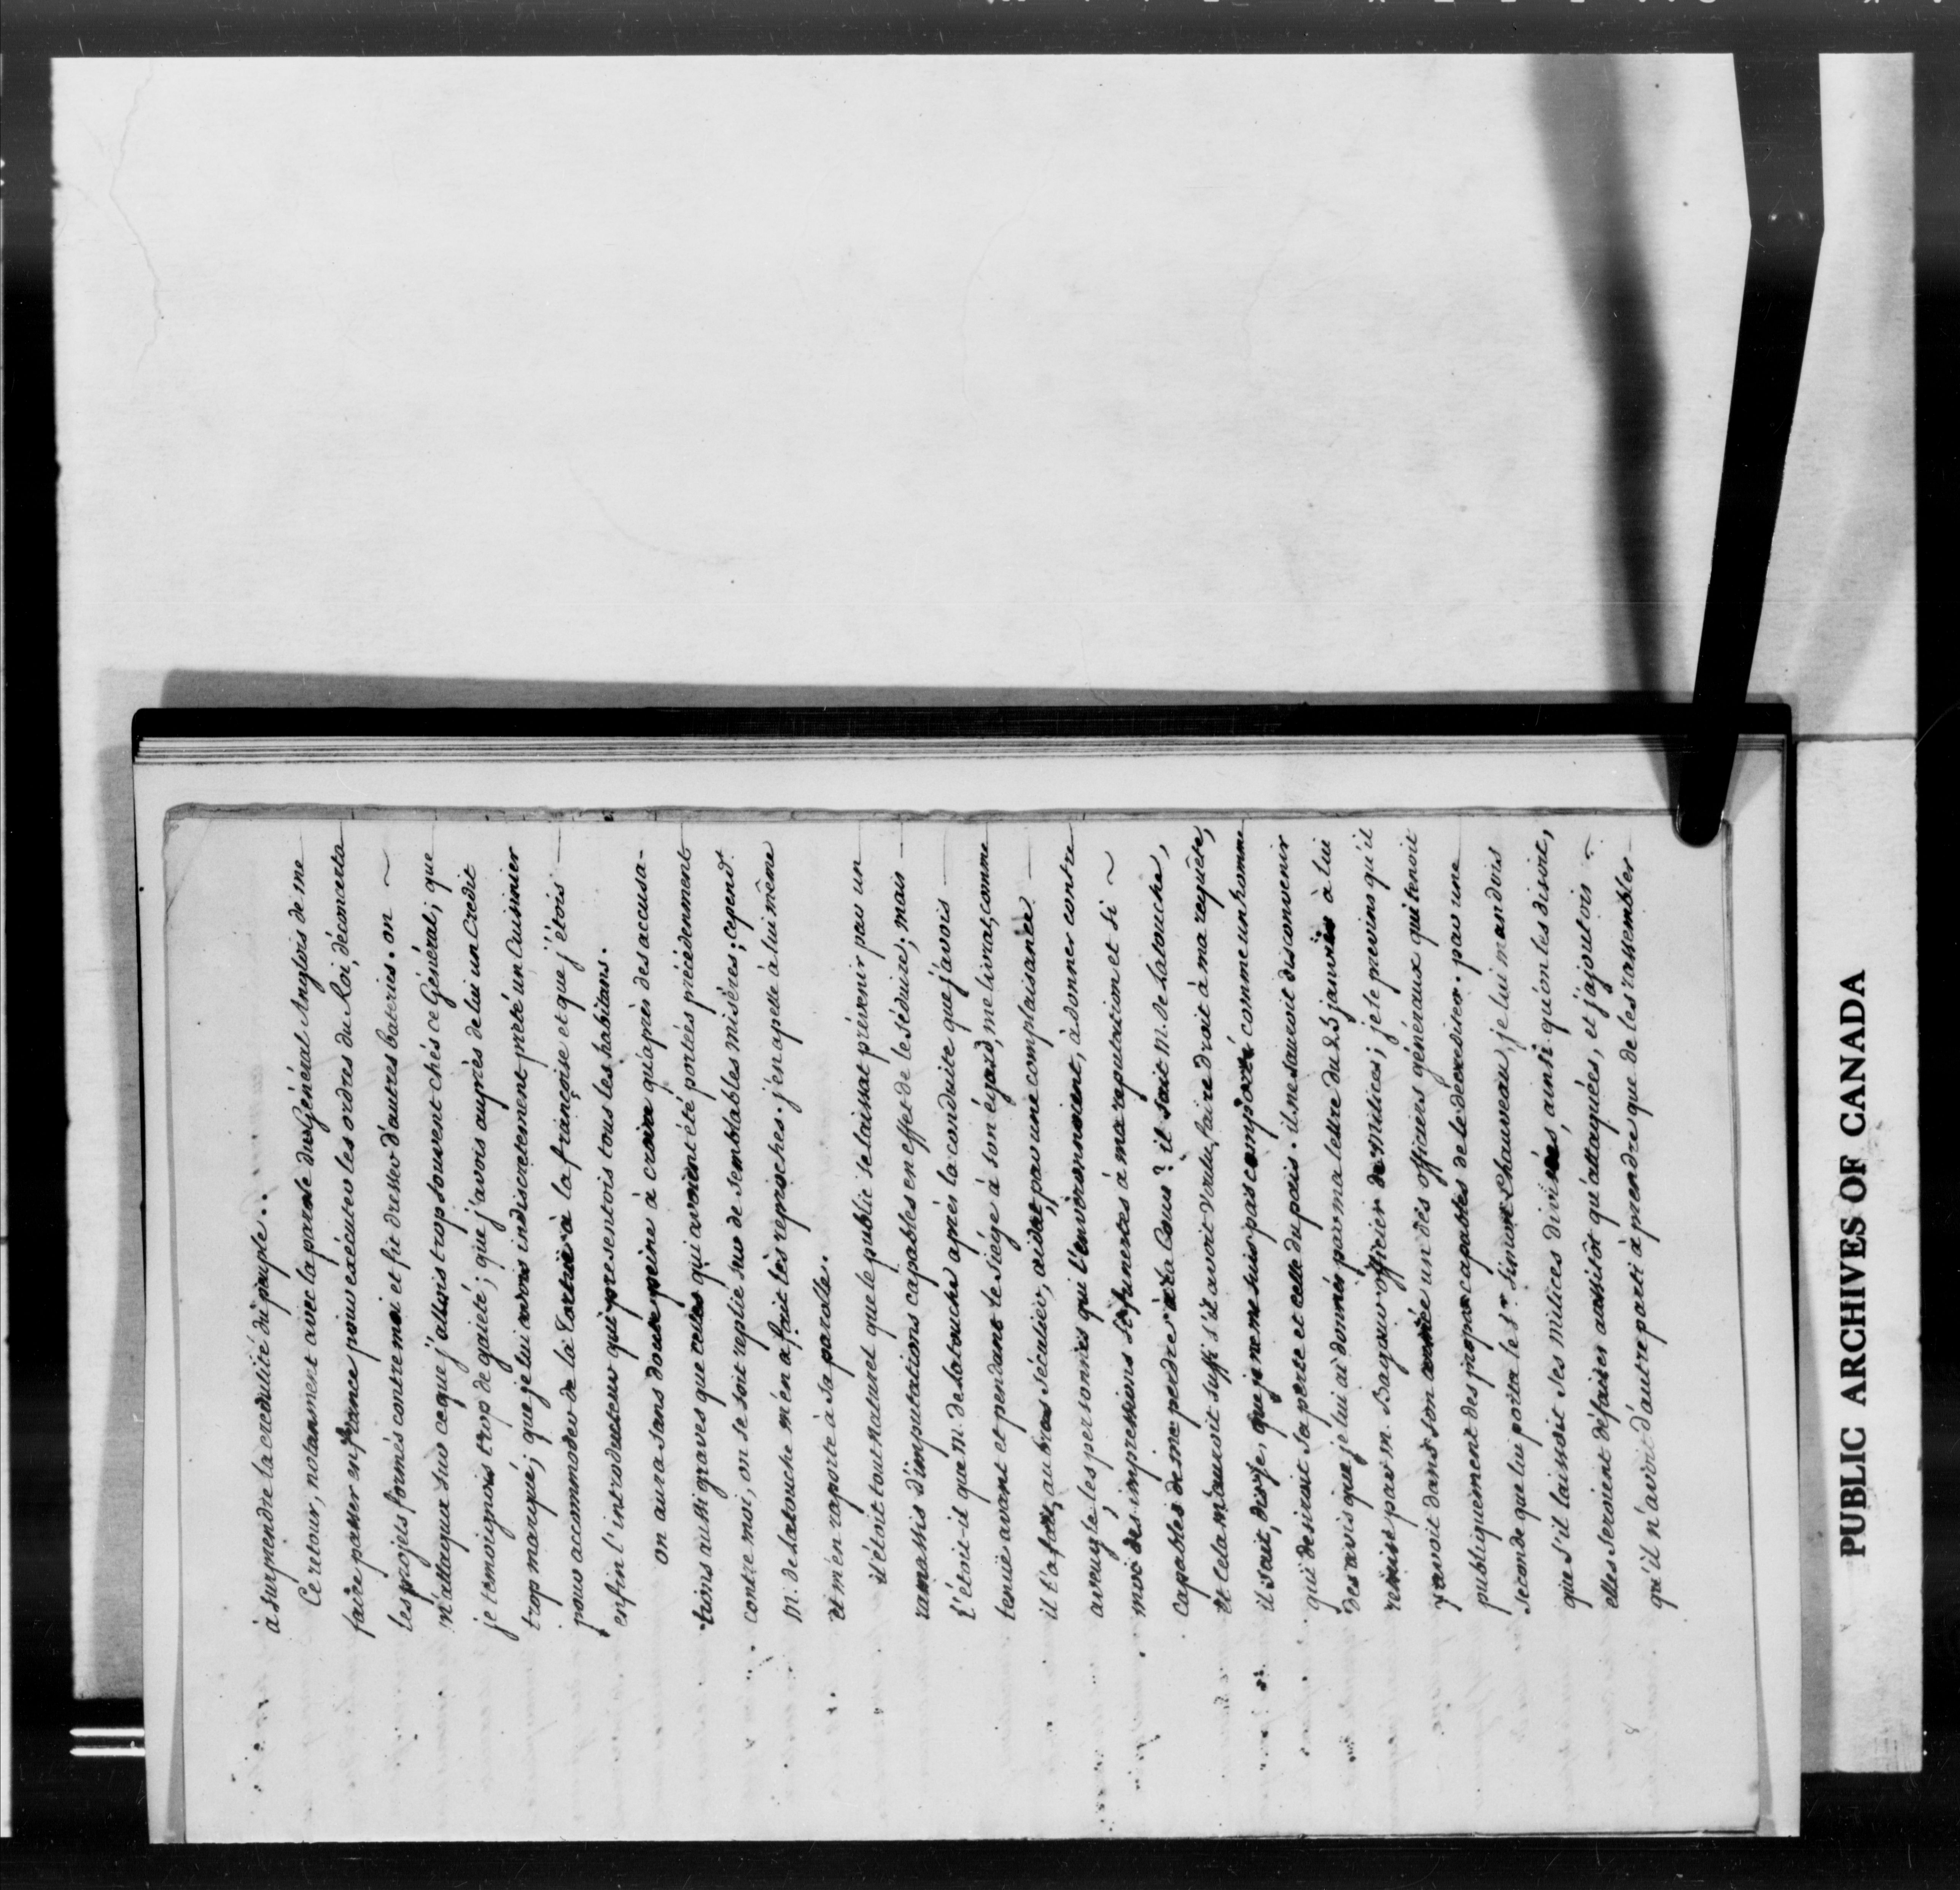 à surprendre la credulité du peuple..
Ce retour, notament avec la parole du Général Anglois de me
faire passer en france pour exécuter les ordres du Roi, déconcerta
les projets formés contre moi et fit dresser d'autres bateries. on ~
m'attaqua sur ce que j'allois trop souvent chés ce Général; que
je temoignois trop de gaieté; que j'avois auprès de lui un credit
trop marqué; que je lui avois indiscretement preté un Cuisinier
pour accommoder de la Tortüe à la françoise et que j'étois
enfin l'introducteur qui presentois tous les habitans.
on aura sans doute peine à croire qu'après des accusa-
tions aussi graves que celles qui avoient été portées précédenment
contre moi, on se soit replié sur de semblables misères; cepend.t
M. de Latouche m'en a fait les reproches. j'en apelle à lui même
et m'en raporte à sa parolle.
il étoit tout naturel que le public se laissat prévenir par un
ramassis d'imputations capables en effet de le séduire; mais
l'étoit-il que M. de latouche après la conduite que j'avois
tenüe avant et pendant le siége à son égard, me livrat, comme
il l'a fait, au bras séculier, aidat par une complaisance
aveugle les personnes qui l'environnoient, à donner contre
moi des impressions si funestes à ma reputation et si ~
capables de me perdre à la Cour? il sait M. de Latouche,
et cela m'auroit suffi s'il avoit voulu faire droit à ma requête,
il sait, disje, que je ne me suis pas comporté comme un homme
qui desiroit sa perte et celle du païs. il ne sauroit disconvenir
des avis que je lui ai donnés par ma lettre du 25 janvier à lui
remise par M. Baquair officier de Milices; je le previns qu'il
y avoit dans son armée un des officiers généraux qui tenoit
publiquement des propos capables de le décrediter. par une
seconde que lui porta le s.r Simon Chauveau, je lui mandois
que s'il laissoit ses milices divisées, ainsi qu'on les disoit,
elles seroient défaites aussitôt qu'attaquées, et j'ajoutois ~
qu'il n'avoit d'autre parti à prendre que de les rassembler
PUBLIC ARCHIVES OF CANADA